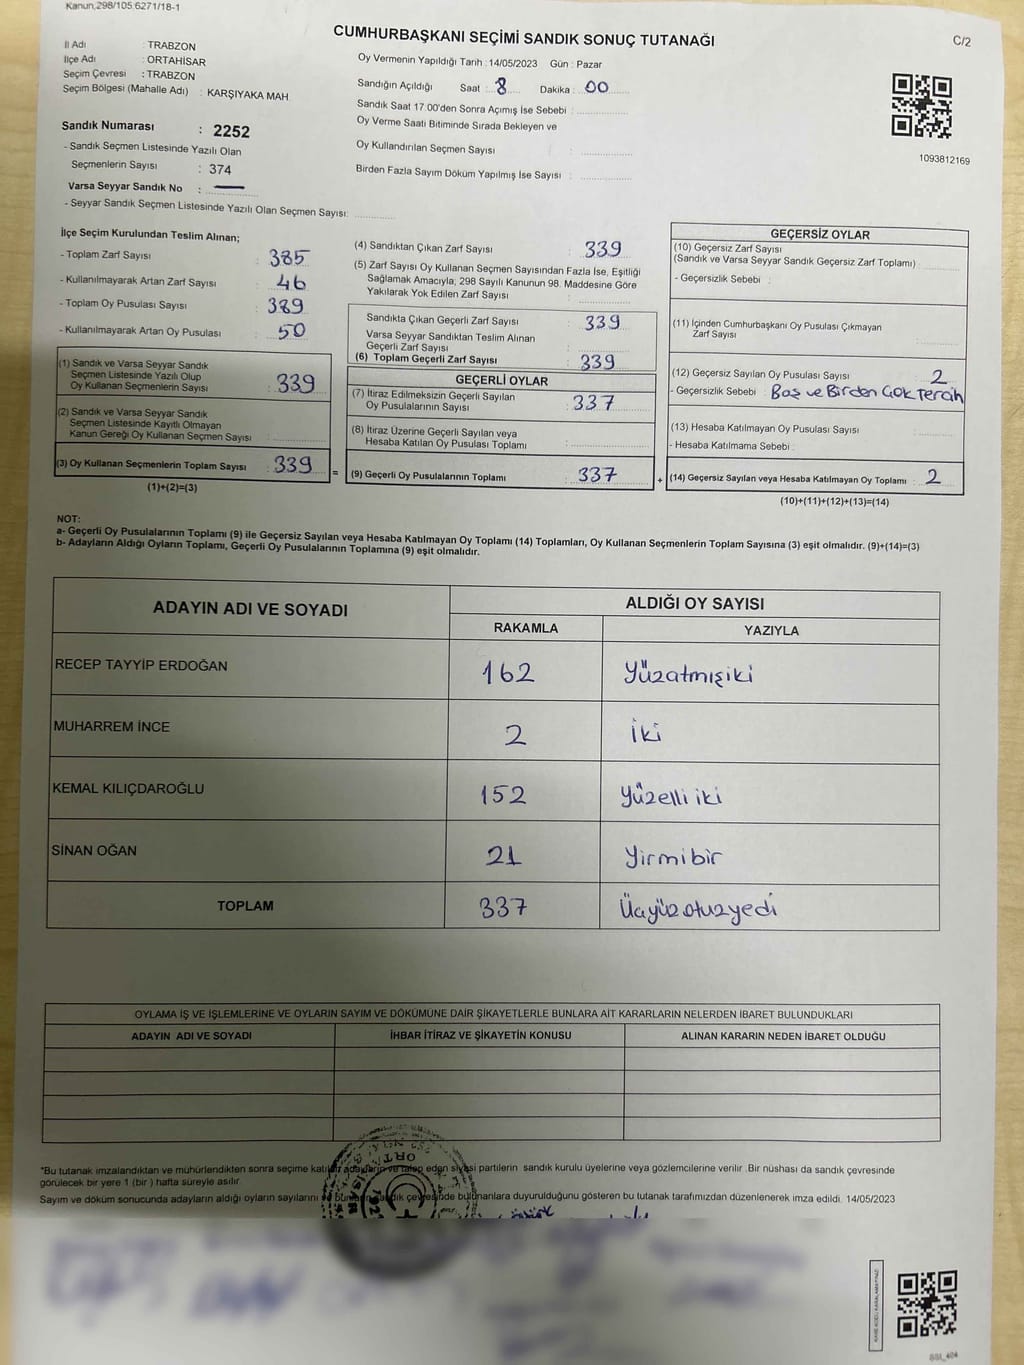 Kanun,298/105,6271/18-1
CUMHURBAŞKANI SEÇİMİ SANDIK SONUÇ TUTANAĞI
C/2
İl Adı : TRABZON
İlçe Adı : ORTAHİSAR
Seçim Çevresi : TRABZON
Seçim Bölgesi (Mahalle Adı) : KARŞIYAKA MAH
Sandık Numarası : 2252
- Sandık Seçmen Listesinde Yazılı Olan
Seçmenlerin Sayısı : 374
Varsa Seyyar Sandık No : —
- Seyyar Sandık Seçmen Listesinde Yazılı Olan Seçmen Sayısı:
Oy Vermenin Yapıldığı Tarih : 14/05/2023 Gün : Pazar
Sandığın Açıldığı Saat : 8 Dakika : 00
Sandık Saat 17:00'den Sonra Açmış İse Sebebi :
Oy Verme Saati Bitiminde Sırada Bekleyen ve
Oy Kullandırılan Seçmen Sayısı :
Birden Fazla Sayım Döküm Yapılmış İse Sayısı :
1093812169
İlçe Seçim Kurulundan Teslim Alınan;
- Toplam Zarf Sayısı : 385
- Kullanılmayarak Artan Zarf Sayısı : 46
- Toplam Oy Pusulası Sayısı : 389
- Kullanılmayarak Artan Oy Pusulası : 50
(1) Sandık ve Varsa Seyyar Sandık
Seçmen Listesinde Yazılı Olup
Oy Kullanan Seçmenlerin Sayısı : 339
(2) Sandık ve Varsa Seyyar Sandık
Seçmen Listesinde Kayıtlı Olmayan
Kanun Gereği Oy Kullanan Seçmen Sayısı :
(3) Oy Kullanan Seçmenlerin Toplam Sayısı : 339
(1)+(2)=(3)
(4) Sandıktan Çıkan Zarf Sayısı : 339
(5) Zarf Sayısı Oy Kullanan Seçmen Sayısından Fazla İse, Eşitliği
Sağlamak Amacıyla; 298 Sayılı Kanunun 98. Maddesine Göre
Yakılarak Yok Edilen Zarf Sayısı :
Sandıkta Çıkan Geçerli Zarf Sayısı : 339
Varsa Seyyar Sandıktan Teslim Alınan
Geçerli Zarf Sayısı :
(6) Toplam Geçerli Zarf Sayısı : 339
GEÇERLİ OYLAR
(7) İtiraz Edilmeksizin Geçerli Sayılan
Oy Pusulalarının Sayısı : 337
(8) İtiraz Üzerine Geçerli Sayılan veya
Hesaba Katılan Oy Pusulası Toplamı :
= (9) Geçerli Oy Pusulalarının Toplamı : 337 +
GEÇERSİZ OYLAR
(10) Geçersiz Zarf Sayısı
(Sandık ve Varsa Seyyar Sandık Geçersiz Zarf Toplamı) :
- Geçersizlik Sebebi :
(11) İçinden Cumhurbaşkanı Oy Pusulası Çıkmayan
Zarf Sayısı :
(12) Geçersiz Sayılan Oy Pusulası Sayısı : 2
- Geçersizlik Sebebi : Boş ve Birden Çok Tercih
(13) Hesaba Katılmayan Oy Pusulası Sayısı :
- Hesaba Katılmama Sebebi :
(14) Geçersiz Sayılan veya Hesaba Katılmayan Oy Toplamı : 2
(10)+(11)+(12)+(13)=(14)
NOT:
a- Geçerli Oy Pusulalarının Toplamı (9) ile Geçersiz Sayılan veya Hesaba Katılmayan Oy Toplamı (14) Toplamları, Oy Kullanan Seçmenlerin Toplam Sayısına (3) eşit olmalıdır. (9)+(14)=(3)
b- Adayların Aldığı Oyların Toplamı, Geçerli Oy Pusulalarının Toplamına (9) eşit olmalıdır.
ADAYIN ADI VE SOYADI
ALDIĞI OY SAYISI
RAKAMLA YAZIYLA
RECEP TAYYİP ERDOĞAN 162 Yüzatmışiki
MUHARREM İNCE 2 İki
KEMAL KILIÇDAROĞLU 152 Yüzelli iki
SİNAN OĞAN 21 Yirmibir
TOPLAM 337 Üçyüzotuzyedi
OYLAMA İŞ VE İŞLEMLERİNE VE OYLARIN SAYIM VE DÖKÜMÜNE DAİR ŞİKAYETLERLE BUNLARA AİT KARARLARIN NELERDEN İBARET BULUNDUKLARI
ADAYIN ADI VE SOYADI İHBAR İTİRAZ VE ŞİKAYETİN KONUSU ALINAN KARARIN NEDEN İBARET OLDUĞU
*Bu tutanak imzalandıktan ve mühürlendikten sonra seçime katılan adayların ve talep eden siyasi partilerin sandık kurulu üyelerine veya gözlemcilerine verilir .Bir nüshası da sandık çevresinde
görülecek bir yere 1 (bir ) hafta süreyle asılır.
Sayım ve döküm sonucunda adayların aldığı oyların sayılarını ve bunların sandık çevresinde bulunanlara duyurulduğunu gösteren bu tutanak tarafımızdan düzenlenerek imza edildi. 14/05/2023